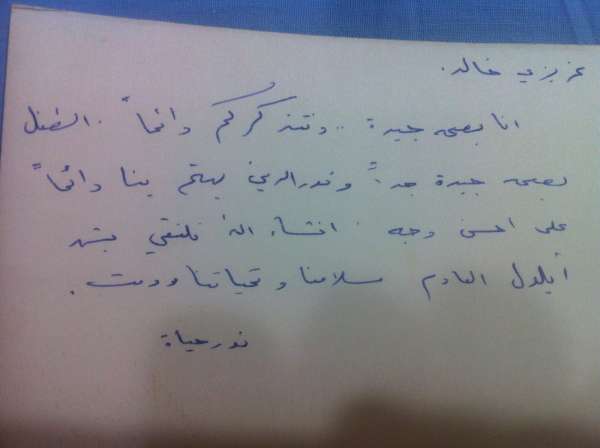 عزيزي خالد.
انا بصحة جيدة .. ونتذكركم دائماً . الطفل
بصحة جيدة جداً و نور الدين يهتم بنا دائماً
على احسن وجه . انشاء الله نلتقي بشهر
أيلول القادم سلامنا و تحياتنا ودمت .
نور حياة